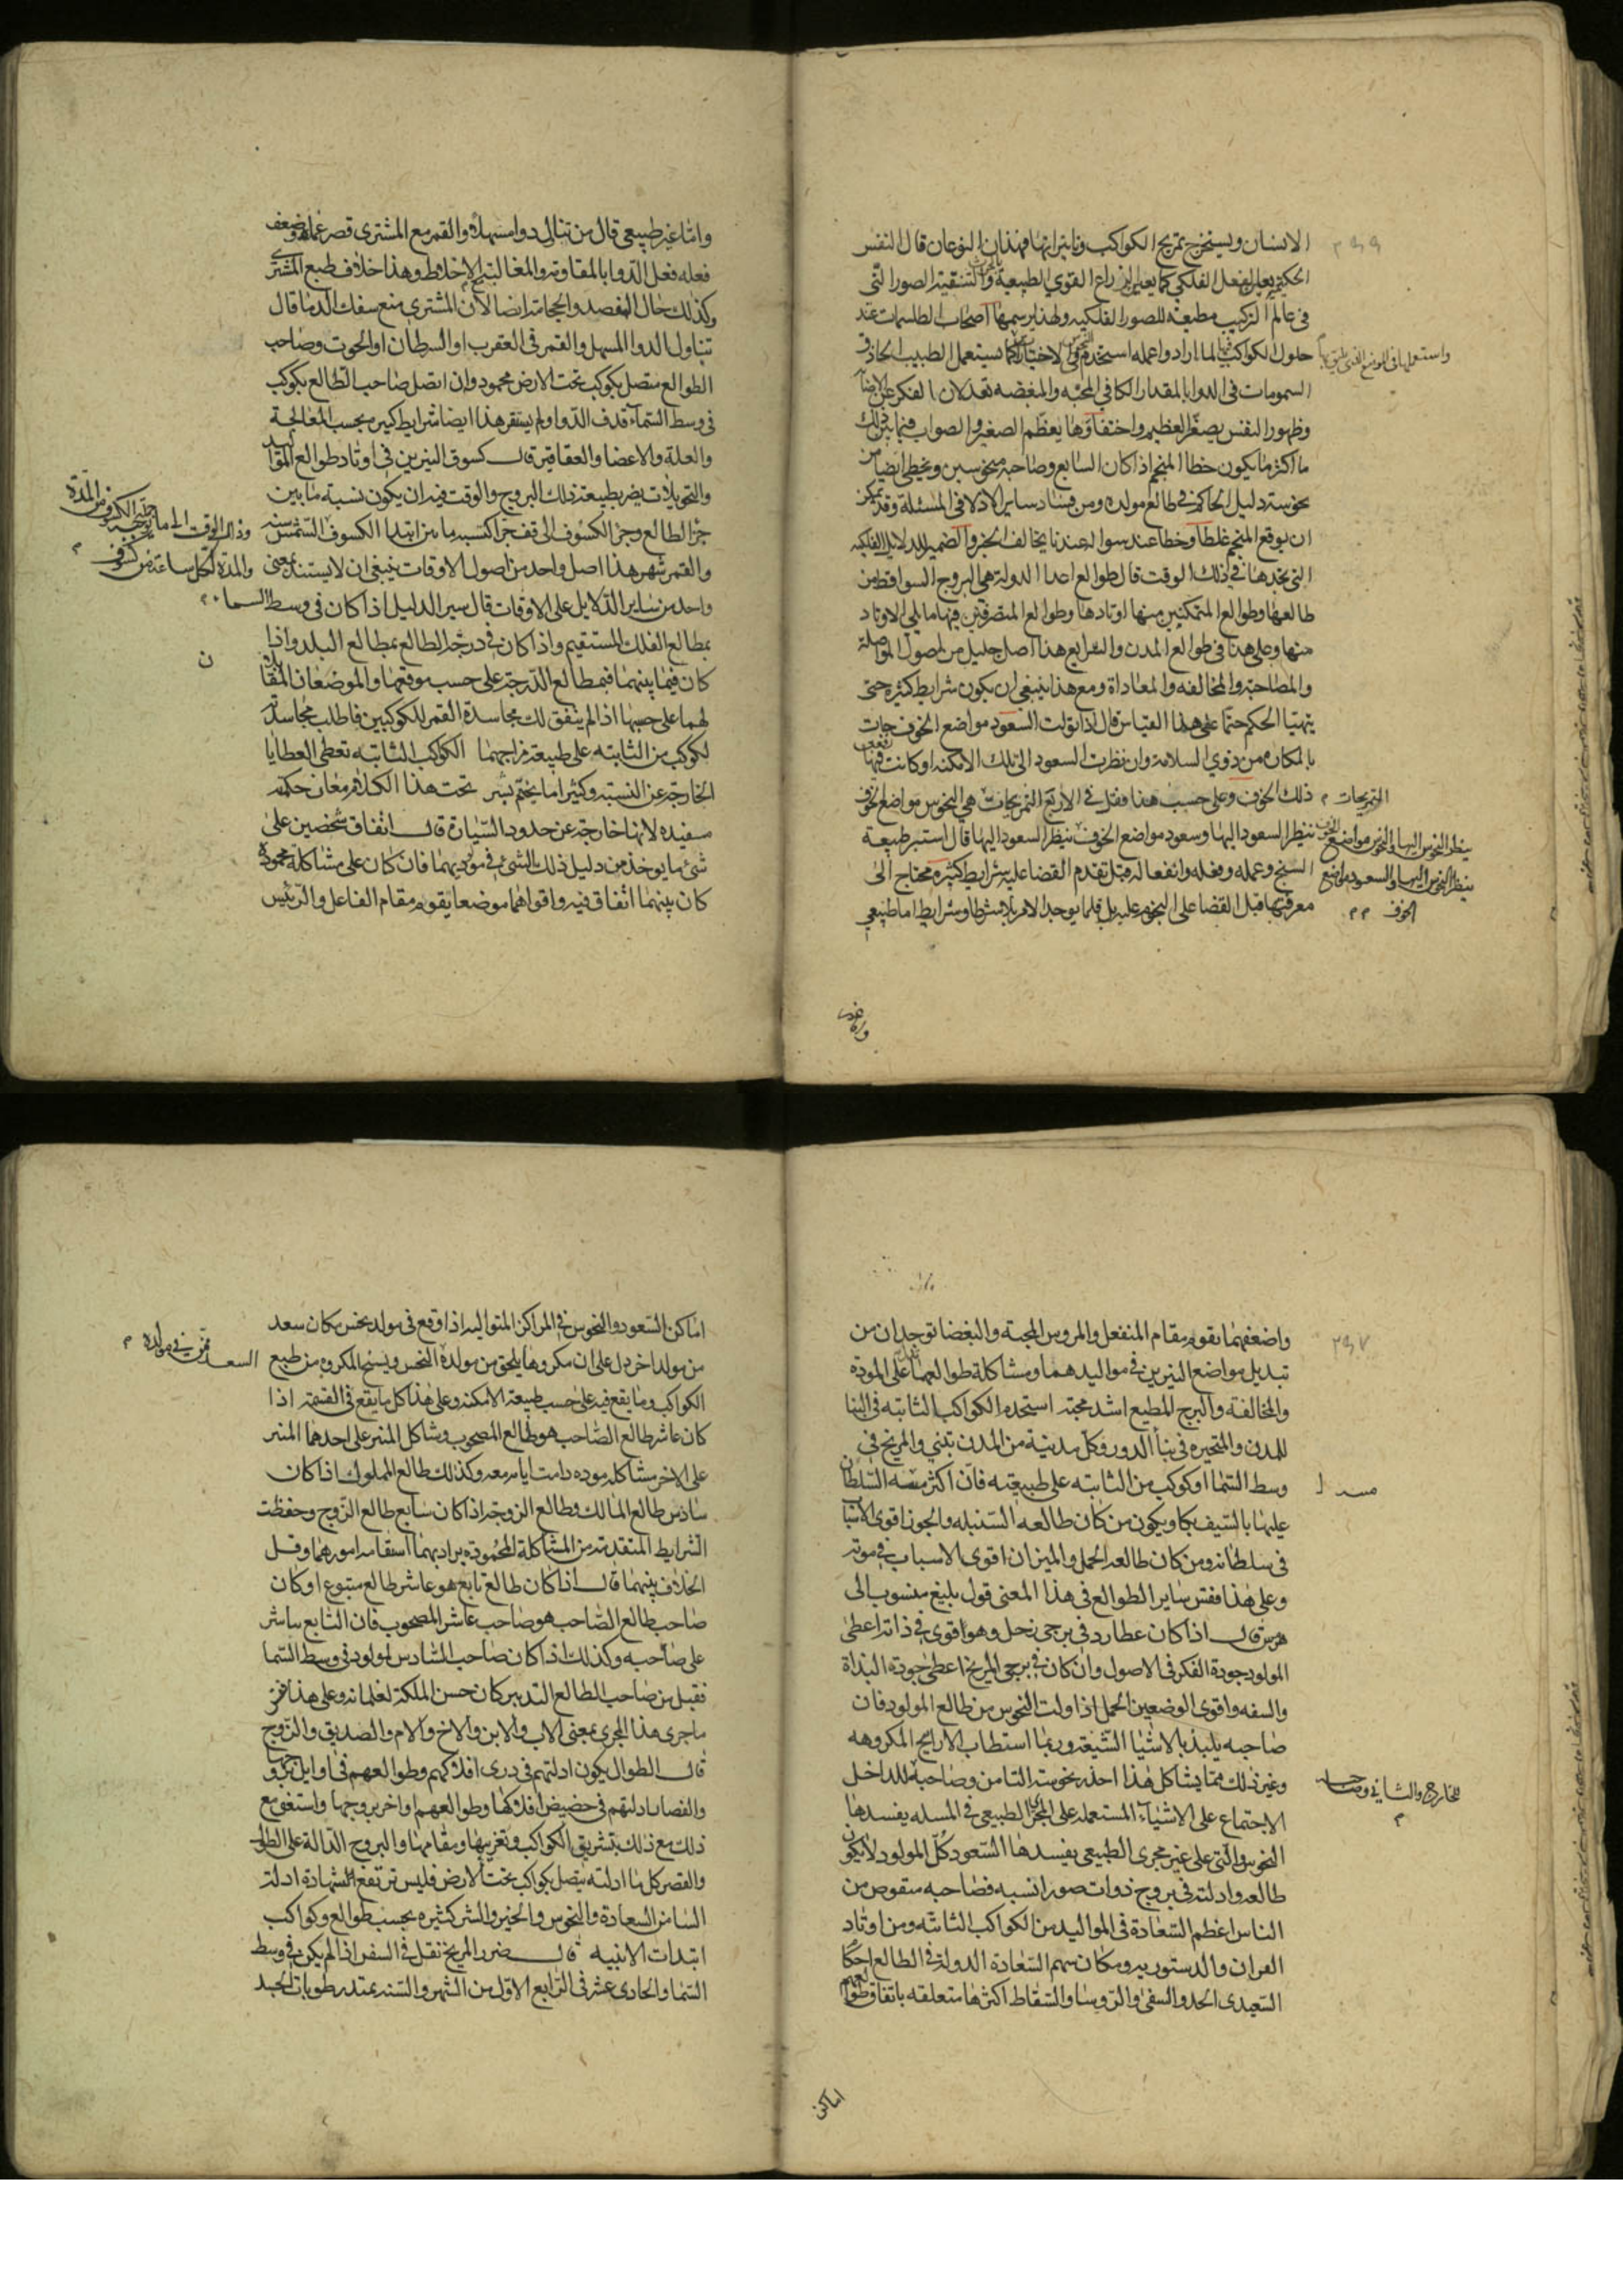 الانسان ويستخرج تمزيج الكواكب وتاثيراتها فهذان النوعان قال النفس
الحكيم يعلم الفعل الفلكي كما يعلم الزراع القوي الطبيعية والتنقية الصور التى
فى عالم التركيب مطيعة للصور الفلكيه ولهذا يرسمها اصحاب الطلسمات عند
حلول الكواكب فيها لما ارادوا عمله استخدم فى الاختيار كما يستعمل الطبيب الحاذق
واستعملها فى الموضع الذى
السمومات فى الدوا بالمقدار الكافي المحبه والمبغضه تعدلان بالفكر عن الاصابة
وظهور النفس يصغر العظيم واختفاؤها يعظم الصغير والصواب فيما بين ذلك
ما اكثر ما يكون خطا المنجم اذا كان السابع وصاحبه منحوسين ويخطى ايضا من
نحوسة دليل الحاكم فى طالع مولده ومن فساد ساير الادلا فى المسئلة وقد يمكن
ان يوقع المنجم غلطا وخطا عند سواله عندنا يخالف الخبر والضمير الدلايل الفلكيه
التى نجدها فى ذلك الوقت قال طوالع اعدا الدولة هى البروج السواقط من
طالعها وطوالع المتمكنين منها اوتادها وطوالع المتصرفين فيها ما يلى الاوتاد
منها وعلى هذا فى طوالع المدن والشرايع هذا اصل جليل من اصول المواصلة
والمصاحبة والمخالفه والمعاداة ومع هذا ينبغى ان يكون شرايط كثيره حتى
يتهيا الحكم حتما على هذا القياس قال اذا تولت السعود مواضع الخوف جات
بالمكاره من ذوي السلامة وان نظرت السعود الى تلك الامكنه او كانت فيها
ذلك الخوف وعلى حسب هذا فقل فى الاربع التمزيجات هى النحوس مواضع الخوف
التمزيجات
ينظر السعود اليها وسعود مواضع الخوف ينظر السعود اليها قال استبر طبيعة
ينظر النحوس اليها والنحوس مواضع الخوف
السنح وعمله وفعله وانفعاله قبل تقدم القضا عليه شرايط كثيره محتاج الى
ينظر النحوس اليها والسعود مواضع
معرفتها قبل القضا على النجوم عليه بل قلما يوجد الامر بلا شرط وشرايط اما طبيعي
الخوف
واما غير
واما غير طبيعى قال من تناول دوا مسهلا والقمر مع المشترى قصر عمله وضعف
فعله فعل الدوا بالمقاومة والمغالبة للاخلاط وهذا خلاف طبع المشترى
وكذلك حال الفصد والحجامة ايضا لان المشترى منع سفك الدما قال
تناول الدوا المسهل والقمر فى العقرب او السرطان او الحوت وصاحب
الطوالع متصل بكوكب تحت الارض محمود وان اتصل صاحب الطالع بكوكب
فى وسط السماء قذف الدوا ولم يستقر هذا ايضا شرايط كثير بحسب المعالجة
والعلة والاعضا والعقاقير قال كسوف النيرين فى اوتاد طوالع المواليد
والتحويلات يضر بطبيعة ذلك البروج والوقت فيه ان يكون نسبة ما بين
جزء الطالع وجزء الكسوف الى قف جزا كنسبة ما من ابتدا الكسوف الشمس سنه
وذلك الوقت الى ما
والقمر شهر هذا اصل واحد من اصول الاوقات ينبغى ان لا يستند بمعنى
والمدة لكل ساعة من كسوف
واحد من ساير الدلايل على الاوقات قال سير الدليل اذا كان فى وسط السما
بمطالع الفلك المستقيم واذا كان فى درجة الطالع بمطالع البلد واذا
كان فيما بينهما فبمطالع الدرجة على حسب موقعهما والموضعان المقابلان
ن
لهما على حسبها اذا لم يتفق لك مجاسدة القمر للكوكبين فاطلب مجاسدته
لكوكب من الثابته على طبيعة مزاجهما الكواكب الثابته تعطى العطايا
الخارجة عن النسبة وكثيرا ما يختم بشر تحت هذا الكلام معان حكمه
مفيده لانها خارجة عن حدود السيارة قال اتفاق شخصين على
شئ ما يوخذ من دليل ذلك الشئ فى مولديهما فان كان على مشاكلة محمودة
كان بينهما اتفاق فيه واقواهما موضعا يقوم مقام الفاعل والرئيس
واضعفهما يقوم مقام المنفعل والمروس المحبة والبغضا توجدان من
تبديل مواضع النيرين فى مواليدهما ومشاكلة طوالعهما على المودة
والمخالفة والبرج المطيع اشد محبة استخدم الكواكب الثابته فى البنا
للمدن والمتحيره فى بنا الدور وكل مدينة من المدن تبنى والمريخ فى
وسط السما او كوكب من الثابته على طبيعته فان اكثر منسه السلطان
عليها بالسيف بكا ويكون من كان طالعه السنبله والجوزا اقوى الاسباب
فى سلطانه ومن كان طالعه الحمل والميزان اقوى الاسباب فى موته
وعلى هذا فقس ساير الطوالع فى هذا المعنى قول بليغ منسوب الى
هرمس قال اذا كان عطارد فى برجى زحل وهو اقوى فى ذاته اعطى
المولود جودة الفكر فى الاصول وان كان فى برجى المريخ اعطى جودة البذاة
والسفه واقوى الوضعين الحمل اذا ولت النحوس من طالع المولود فان
صاحبه يلتذ بالاشيا الشنيعة وربما استطاب الارايح المكروهه
وغير ذلك مما يشاكل هذا احذر نحوسة الثامن وصاحبه للداخل
للخارج والثانى وصاحبه
الاجتماع على الاشياء المستعمله على المجرى الطبيعى فى المسله يفسدها
النحوس والتى على غير مجرى الطبيعى يفسدها السعود كل المولود لا يكون
طالعه وادلته فى بروج ذوات صور انسيه فصاحبه منقوص من
الناس اعظم السعادة فى المواليد من الكواكب الثابته ومن اوتاد
القران والدستوريه ومكان سهم السعادة الدولة فى الطالع احكا
التعبدى الحدو السفى والروسا والسقاط اكثرها متعلقه باتفاق طوالعهم
اماكن
اماكن السعود والنحوس فى المراكز المتواليه اذا وقع فى مولد نحس مكان سعد
من مولد اخر دل على ان مكروها يلحق من مولده النحس ويسنح المكروه من طبع
السعد فى مولده
الكواكب وما يقع فيه على حسب طبيعة الامكنه وعلى هذا كل ما يقع فى القسمة اذا
كان عاشر طالع الصاحب هو طالع المصحوب وشاكل المنير على احدهما المنير
على الاخر مشاكلة موده دامت ايامه معه وكذلك طالع المملوك اذا كان
سادس طالع المالك وطالع الزوجة اذا كان سابع طالع الزوج وحفظت
الشرايط المتقدمة من المشاكلة المحموده يراد بهما استقامه امورهما وقل
الخلاف بينهما قال اذا كان طالع تابع هو عاشر طالع متبوع او كان
صاحب طالع الصاحب هو صاحب عاشر المصحوب فان التابع يباشر
على صاحبه وكذلك اذا كان صاحب السادس لمولود فى وسط السما
فقبل من صاحب الطالع التدبير كان حسن الملكة لغلمانه وعلى هذا فقس
ماجرى هذا المجرى بمعنى الاب والابن والاخ والام والصديق والزوج
قال الطوال يكون ادلتهم فى ذرى افلاكهم وطوالعهم فى اوايل بروجها
والقصار ادلتهم فى حضيض افلاكها وطوالعهم اواخر بروجها واستعن مع
ذلك مع ذلك بتشريق الكواكب وتغريبها ومقامها والبروج الدالة على الطول
والقصر كل ما ادلته يتصل بكواكب تحت الارض فليس ترتفع الشهادة ادلة
السامن السعادة والنحوس والخير والشر كثيره بحسب طوالع وكواكب
ابتدات الابنيه قال ضرر المريخ نقل فى السفن اذا لم يكن فى وسط
السما والحادى عشر فى الرابع الاول من الشهر والسنه يمتد رطوبات الجسد